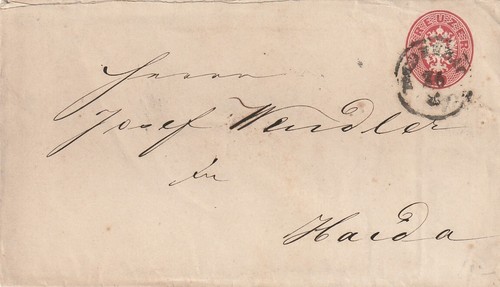 KREUZER
Herrn
Josef Wendler
in
Haida